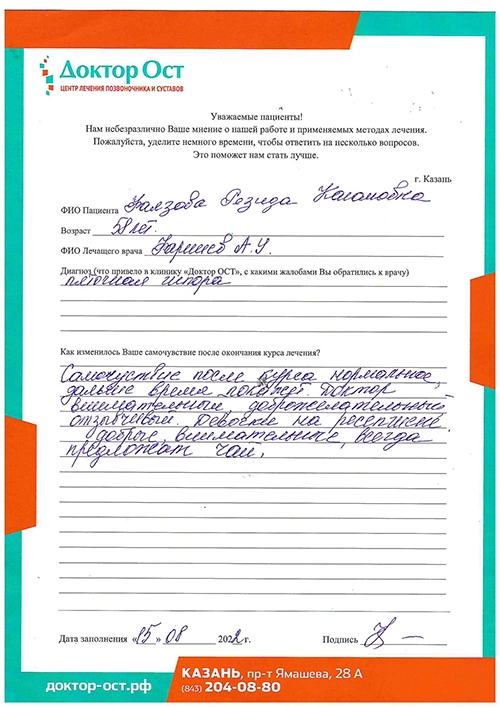 Доктор Ост
ЦЕНТР ЛЕЧЕНИЯ ПОЗВОНОЧНИКА И СУСТАВОВ
Уважаемые пациенты!
Нам небезразлично Ваше мнение о нашей работе и применяемых методах лечения.
Пожалуйста, уделите немного времени, чтобы ответить на несколько вопросов.
Это поможет нам стать лучше.
г. Казань
ФИО Пациента Резида
Возраст 58 лет.
ФИО Лечащего врача А.У.
Диагноз (что привело в клинику «Доктор ОСТ», с какими жалобами Вы обратились к врачу)
пяточная шпора
Как изменилось Ваше самочувствие после окончания курса лечения?
Самочувствие после курса нормальное,
дальше время покажет. Доктор
внимательный доброжелательный
отзывчивый. Девочки на ресепшене
добрые, внимательные, всегда
предложат чай.
Дата заполнения «15» 08 2022 г. Подпись
доктор-ост.рф
КАЗАНЬ, пр-т Ямашева, 28 А
(843) 204-08-80